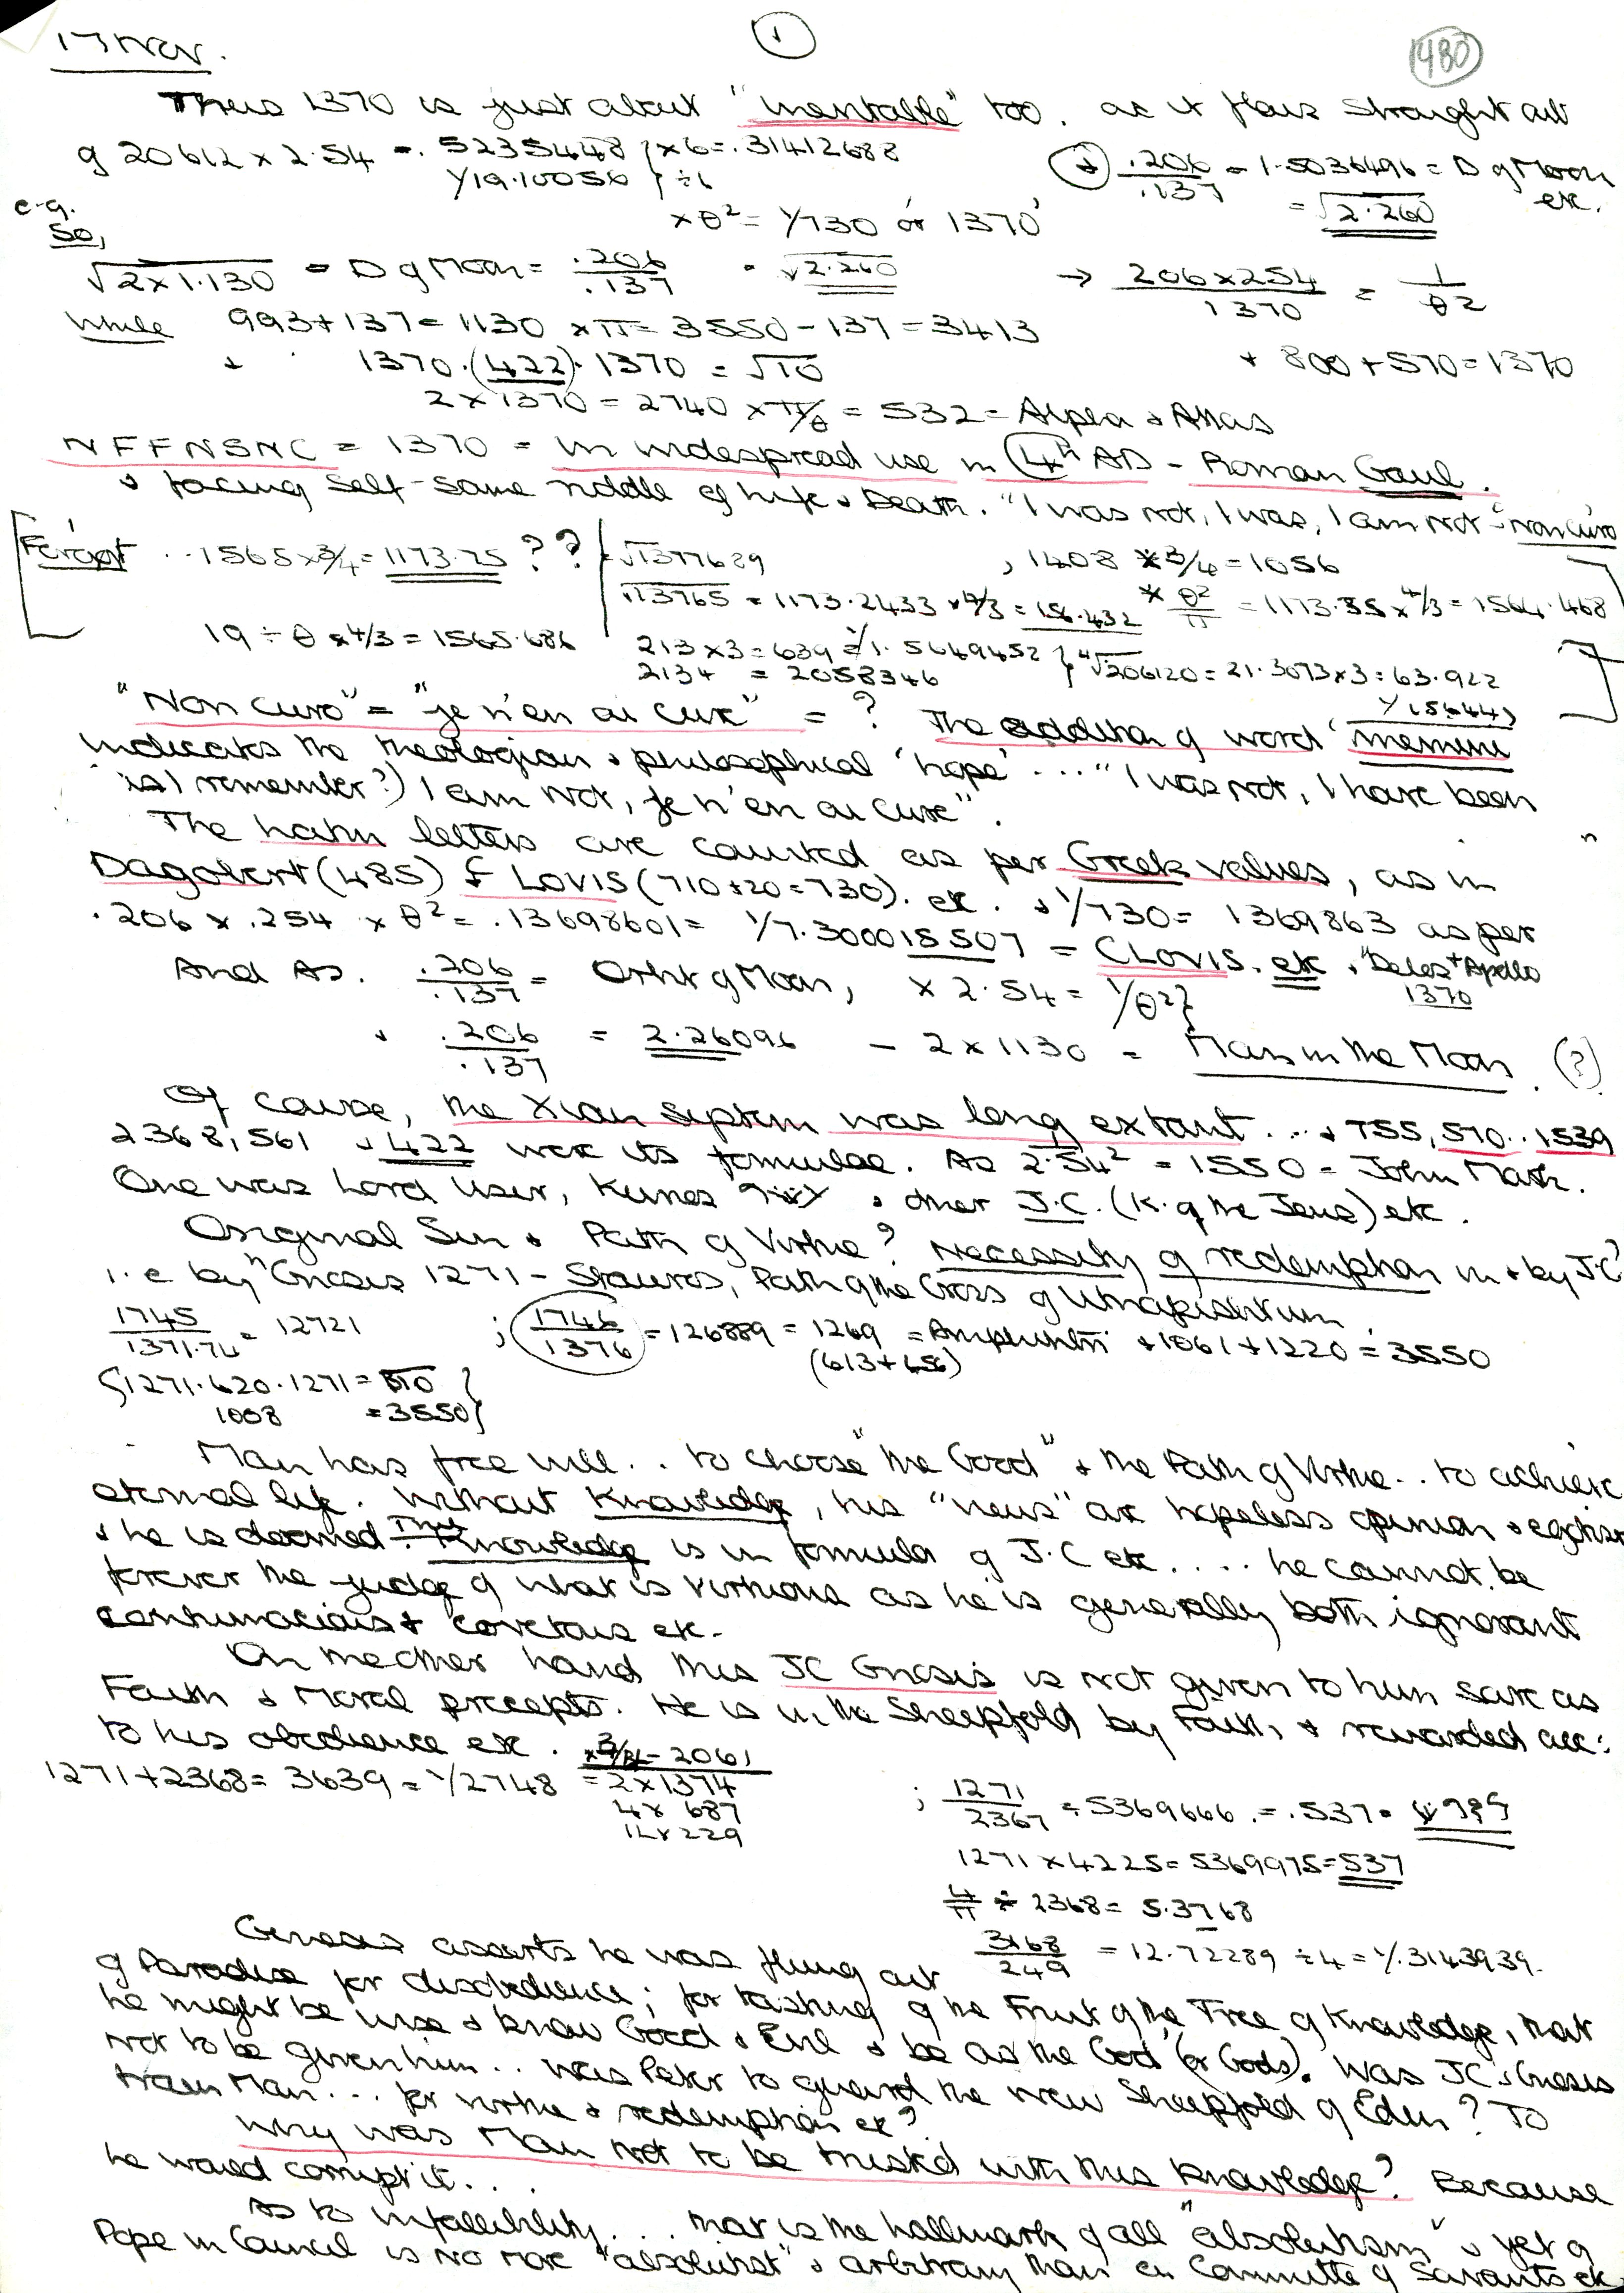 17 Nov.
1
480
Thus 1370 is just about "inevitable" too. as it flows straight out
of 20612 x 2.54 = .5235448 } x 6 = .31412688
1/19.10056 } ÷ 6
+ .206/.137 = 1.5036496 = D of Moon etc.
= √2.260
x θ² = 1/730 or 1370
e.g.
So,
√2x1.130 = D of Moon = .206/.137 = √2.260
→ 206x254/1370 = 1/θ2
While 993+137 = 1130 x π = 3550 - 137 = 3413
+ 1370.(422).1370 = √10
+ 800+570 = 1370
2 x 1370 = 2740 x π/θ = 532 = Alpha & Atlas
NFFNSNC = 1370 = in widespread use in 4th AD - Roman Gaul.
& facing self-same riddle of Life & Death. "I was not, I was, I am not - non curo
[ Fergot ..1565 x 3/4 = 1173.75 ? ?
√1377629
, 1408 x 3/4 = 1056
√13765 = 1173.2433 x 4/3 = 156.432
x θ²/π = 1173.35 x 4/3 = 1564.468
19 ÷ θ x 4/3 = 1565.686
213 x 3 = 639 = 1/1.5649452
213⁴ = 2058346
⁴√206120 = 21.3073 x 3 = 63.922
1/15644 ]
"Non curo" = "je n'en ai cure" = ? The addition of word 'memini
indicates the theologian & philosophical 'hope' ... "I was not, I have been
(as I remember?) I am not, je n'en ai cure".
The Latin letters are counted as per Greek values, as in
Dagobert (485) & LOVIS (710+20=730). etc. & 1/730 = 1369863 as per
.206 x .254 x θ² = .13698601 = 1/7.300015507 = CLOVIS. etc & "Delos + Apollo
1370
And As. .206/.137 = Orbit of Moon, x 2.54 = 1/θ² }
& .206/.137 = 2.26096 = 2x1130 = Mars in the Moon. (?)
Of course, the Xian system was long extant ... & 755, 570.. 1539
2368, 561 & 422 were its formulae. As 2.54² = 1550 = John Mark.
One was Lord User, & other J.C. (K. of the Jews) etc.
Original Sin & Path of Virtue? Necessity of redemption in & by J.C?
i.e by "Gnosis 1271 - Stauros, Path of the Cross of Utnapishtim.
1745/1371.74 = 12721
; 1746/1376 = 126889 = 1269 = + 1061 + 1220 = 3550
(613+656)
{1271.620.1271 = √10 }
1008 = 3550}
Man has free will.. to choose "the Good" & the Path of Virtue.. to achieve
eternal life. Without Knowledge, his "views" are hopeless opinion & egotism
& he is doomed. This Knowledge is in formula of J.C etc.... he cannot be
forever the judge of what is virtuous as he is generally both ignorant
contumacious & covetous etc.
On the other hand this JC Gnosis is not given to him save as
Faith & Moral precepts. He is in the Sheepfold by Faith & rewarded acc:
to his obedience etc.
1271+2368 = 3639 = 1/2748
x 3/4 = 2061
= 2x1374
4x 687
12x229
; 1271/2367 = 5369666. = .537 =
1271 x 4225 = 5369975 = 537
4/π ÷ 2368 = 5.3768
3168/249 = 12.72289 ÷ 4 = 1/.3143939.
Genesis asserts he was flung out
of Paradise for disobedience; for tasting of the Fruit of the Tree of Knowledge, that
he might be wise & know Good & Evil & be as the God (or Gods). Was JC's Gnosis
not to be given him.. was Peter to guard the new Sheepfold of Eden? To
train Man... for virtue & redemption etc?
Why was Man not to be trusted with this Knowledge? Because
he would corrupt it...
As to infallibility... that is the hallmark of all "absolutism" & yet of
Pope in Council is no more "absolutist" & arbitrary than en Committee of Savants etc